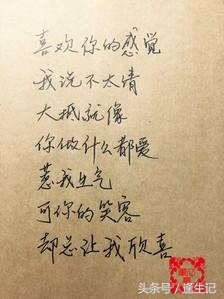 喜欢你的感觉
我说不太清
大抵就像
你做什么都爱
惹我生气
可你的笑容
却总让我欣喜
头条号/逢生记